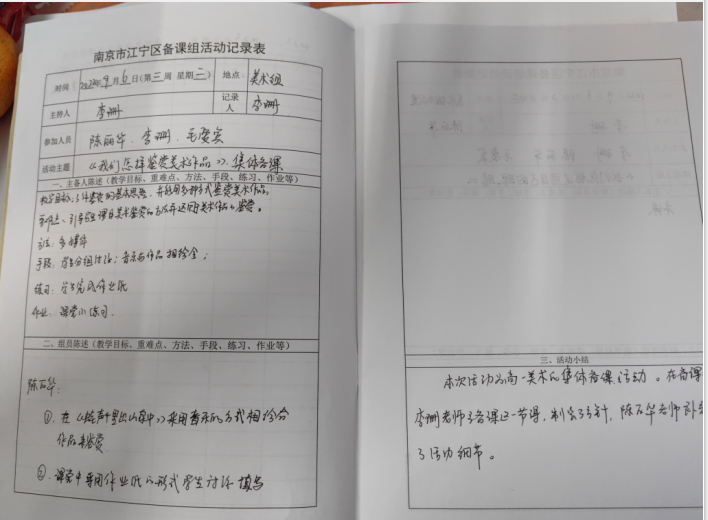 南京市江宁区备课组活动记录表
时间 2022年9月6日(第三周 星期二) 地点 美术组
主持人 李珊 记录人 李珊
参加人员 陈丽华、李珊、毛爱宾
活动主题 《我们怎样鉴赏美术作品》集体备课
一、主备人陈述（教学目标、重难点、方法、手段、练习、作业等）
教学目标：了解鉴赏的基本思路，并利用多种方式鉴赏美术作品。
重难点：引导
方法：多媒体
手段：学生分组讨论；音乐与作品相结合；
练习：学生完成作业纸
作业：课堂小练习.
二、组员陈述（教学目标、重难点、方法、手段、练习、作业等）
陈丽华：
①. 在《蛙声十里出山泉中》采用音乐的方式相结合
作品来鉴赏
②. 课堂中 用作业纸的形式 学生讨论 填写
三、活动小结
本次活动为高一美术的集体备课活动。在备课
李珊老师主备课这一节课，制 了 ，陈丽华老师补
了活动细节。